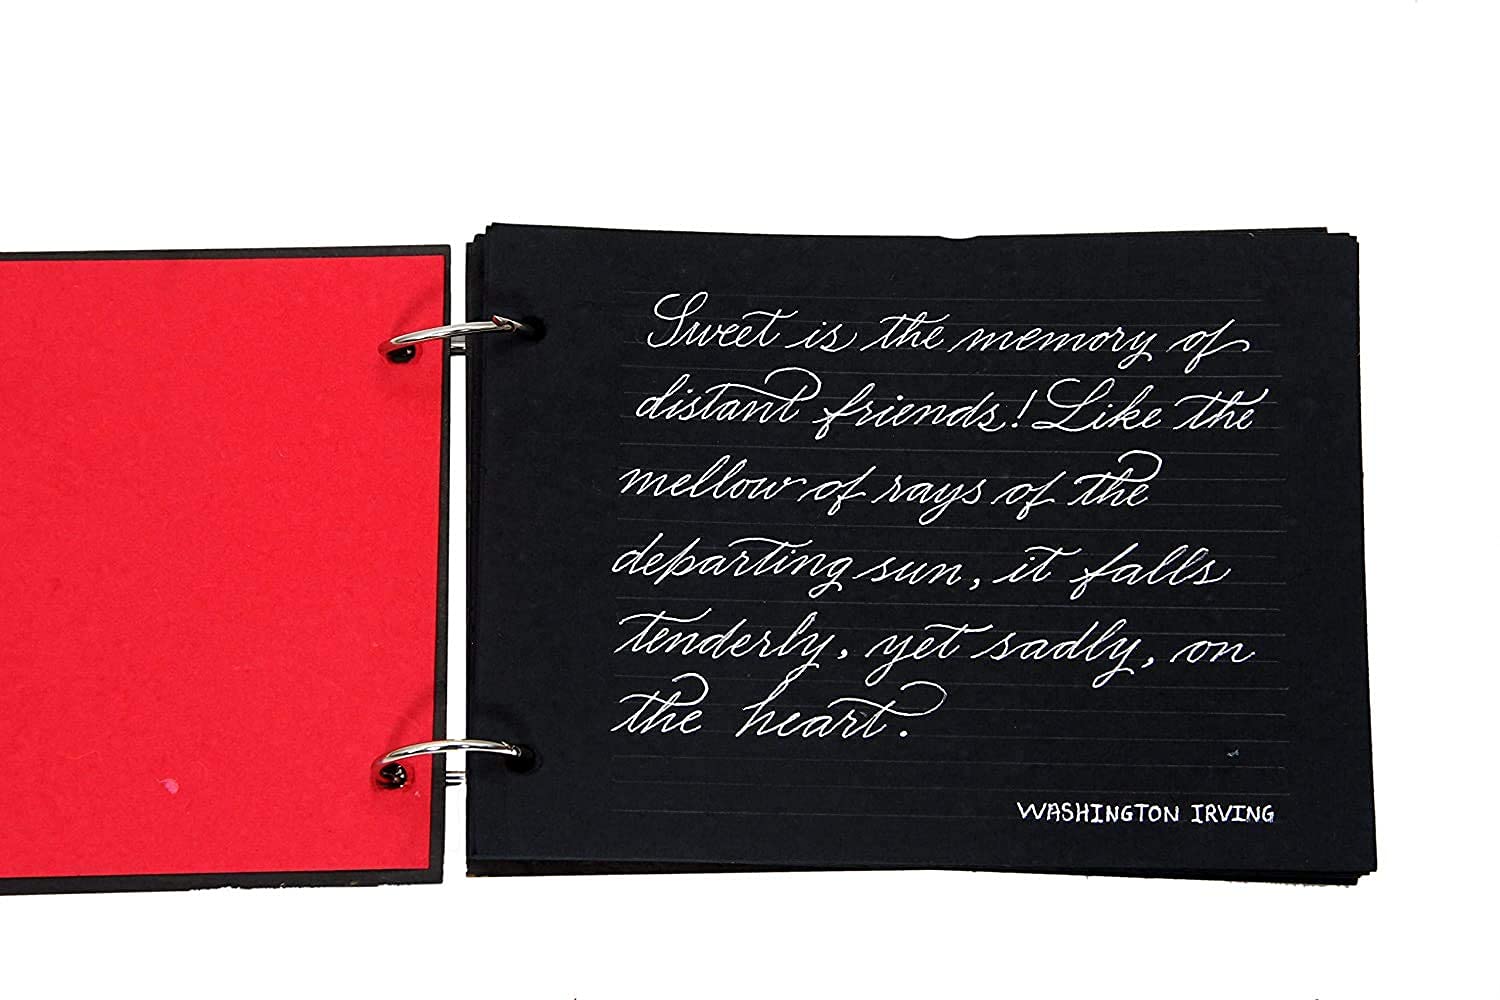 Sweet is the memory of
distant friends! Like the
mellow of rays of the
departing sun, it falls
tenderly, yet sadly, on
the heart.
WASHINGTON IRVING